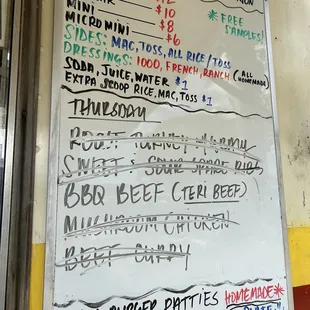 $10
MINI $8
MICRO MINI $6
*FREE SAMPLES!
SIDES: MAC, TOSS, ALL RICE/TOSS
DRESSINGS: 1000, FRENCH, RANCH (ALL HOMEMADE)
SODA, JUICE, WATER $1
EXTRA SCOOP RICE, MAC, TOSS $1
THURSDAY
ROAST TURKEY
SWEET & SOUR SPARE RIBS
BBQ BEEF (TERI BEEF)
MUSHROOM CHICKEN
BEEF CURRY
BURGER PATTIES HOMEMADE*